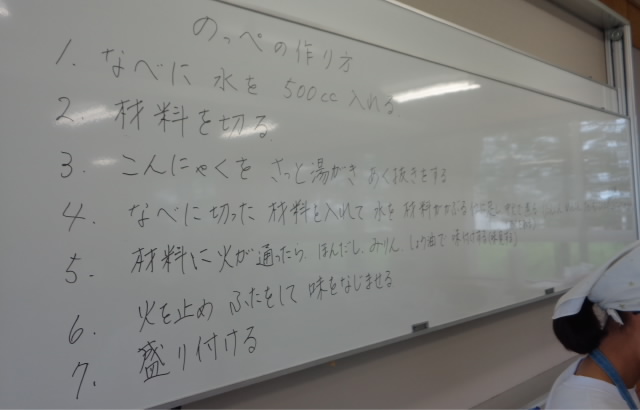 のっぺの作り方
1. なべに 水を 500cc 入れる.
2. 材料を切る
3. こんにゃくを さっと湯がき あく抜きをする
4. なべに切った 材料を入れて 水を 材料がかぶる
5. 材料に火が通ったら、ほんだし、みりん、しょう油で 味付けする
6. 火を止め ふたをして 味をなじませる
7. 盛り付ける